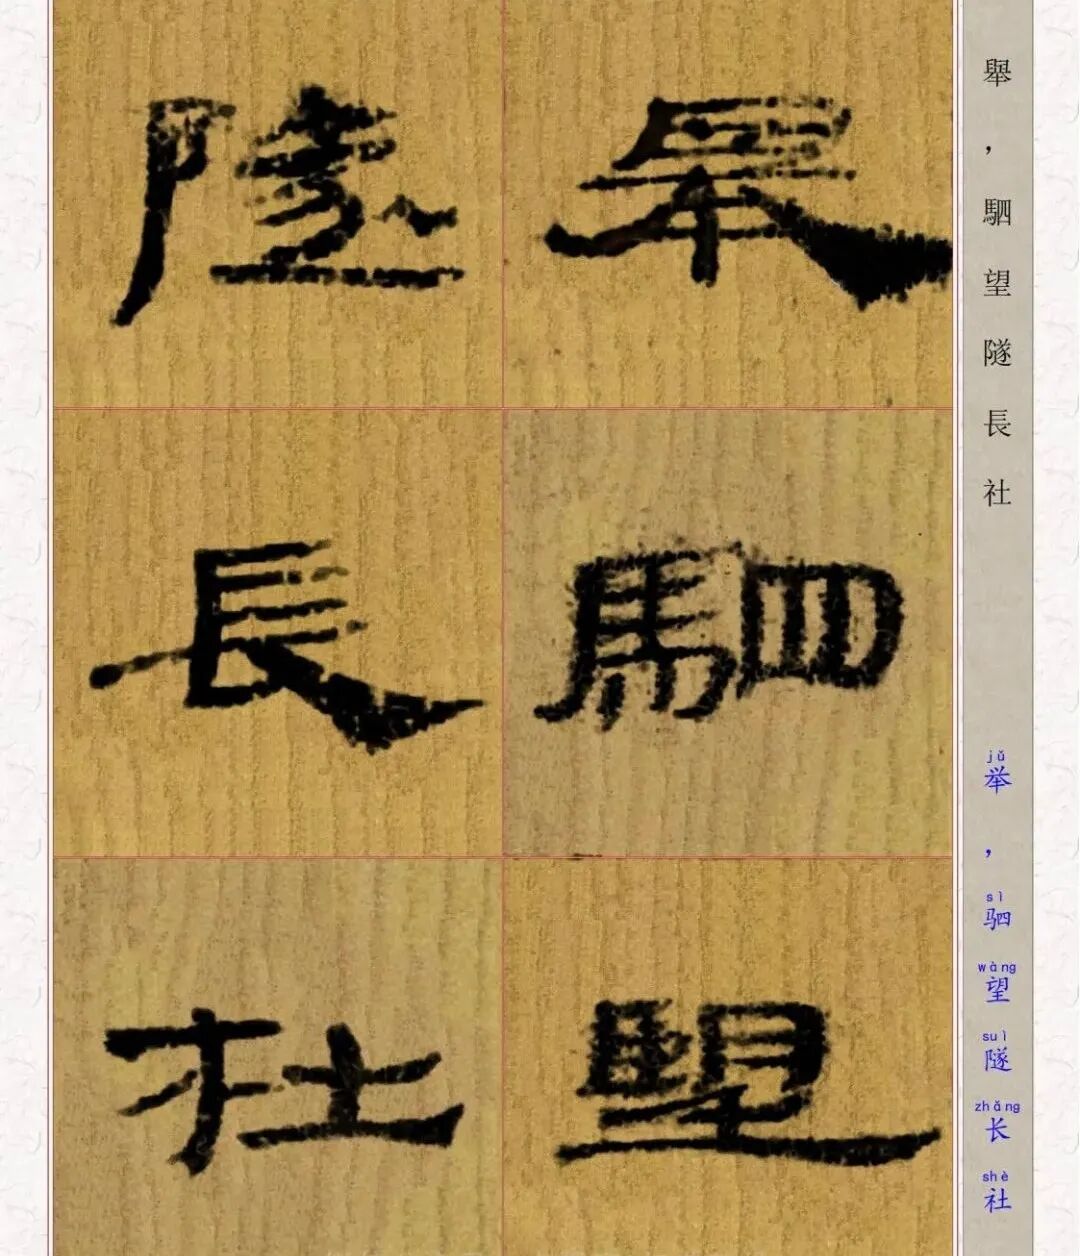 舉，駟望隧長社
jǔ sì wàng suì zhǎng shè
举，驷望隧长社
舉駟望
隧長社